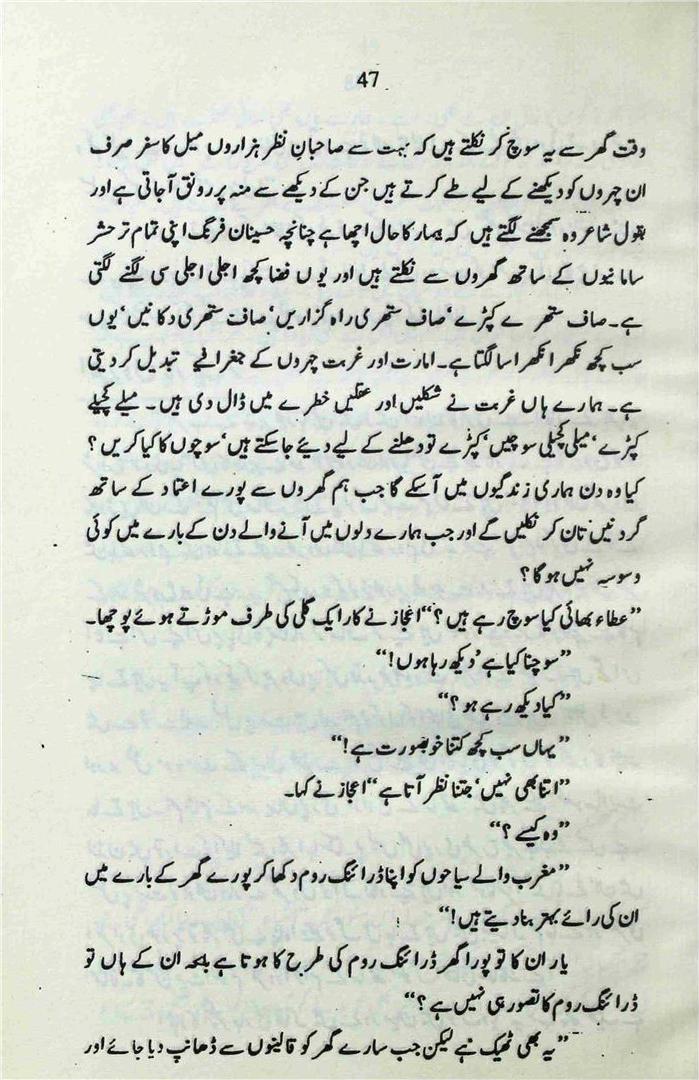 47
وقت گھر سے یہ سوچ کر نکلتے ہیں کہ بہت سے صاحبانِ نظر ہزاروں میل کا سفر صرف
ان چہروں کو دیکھنے کے لیے طے کرتے ہیں جن کے دیکھے سے منہ پر رونق آجاتی ہے اور
بقول شاعر وہ سمجھنے لگتے ہیں کہ بیمار کا حال اچھا ہے چنانچہ حسینان فرنگ اپنی تمام تر حشر
سامانیوں کے ساتھ گھروں سے نکلتے ہیں اور یوں فضا کچھ اجلی اجلی سی لگنے لگتی
ہے۔ صاف ستھرے کپڑے‘ صاف ستھری راہ گزاریں‘ صاف ستھری دکانیں‘ یوں
سب کچھ نکھرا نکھرا سا لگتا ہے۔ امارت اور غربت چہروں کے جغرافیے تبدیل کر دیتی
ہے۔ ہمارے ہاں غربت نے شکلیں اور عقلیں خطرے میں ڈال دی ہیں۔ میلے کچیلے
کپڑے‘ میلی کچیلی سوچیں‘ کپڑے تو دھلنے کے لیے دیئے جاسکتے ہیں‘ سوچوں کا کیا کریں؟
کیا وہ دن ہماری زندگیوں میں آسکے گا جب ہم گھروں سے پورے اعتماد کے ساتھ
گردنیں تان کر نکلیں گے اور جب ہمارے دلوں میں آنے والے دن کے بارے میں کوئی
وسوسہ نہیں ہوگا؟
”عطاء بھائی کیا سوچ رہے ہیں؟“ اعجاز نے کار ایک گلی کی طرف موڑتے ہوئے پوچھا۔
”سوچنا کیا ہے‘ دیکھ رہا ہوں!“
”کیا دیکھ رہے ہو؟“
”یہاں سب کچھ کتنا خوبصورت ہے!“
”اتنا بھی نہیں‘ جتنا نظر آتا ہے“ اعجاز نے کہا۔
”وہ کیسے؟“
”مغرب والے سیاحوں کو اپنا ڈرائنگ روم دکھا کر پورے گھر کے بارے میں
ان کی رائے بہتر بنا دیتے ہیں!“
یار ان کا تو پورا گھر ڈرائنگ روم کی طرح کا ہوتا ہے بلکہ ان کے ہاں تو
ڈرائنگ روم کا تصور ہی نہیں ہے؟“
”یہ بھی ٹھیک ہے لیکن جب سارے گھر کو قالینوں سے ڈھانپ دیا جائے اور